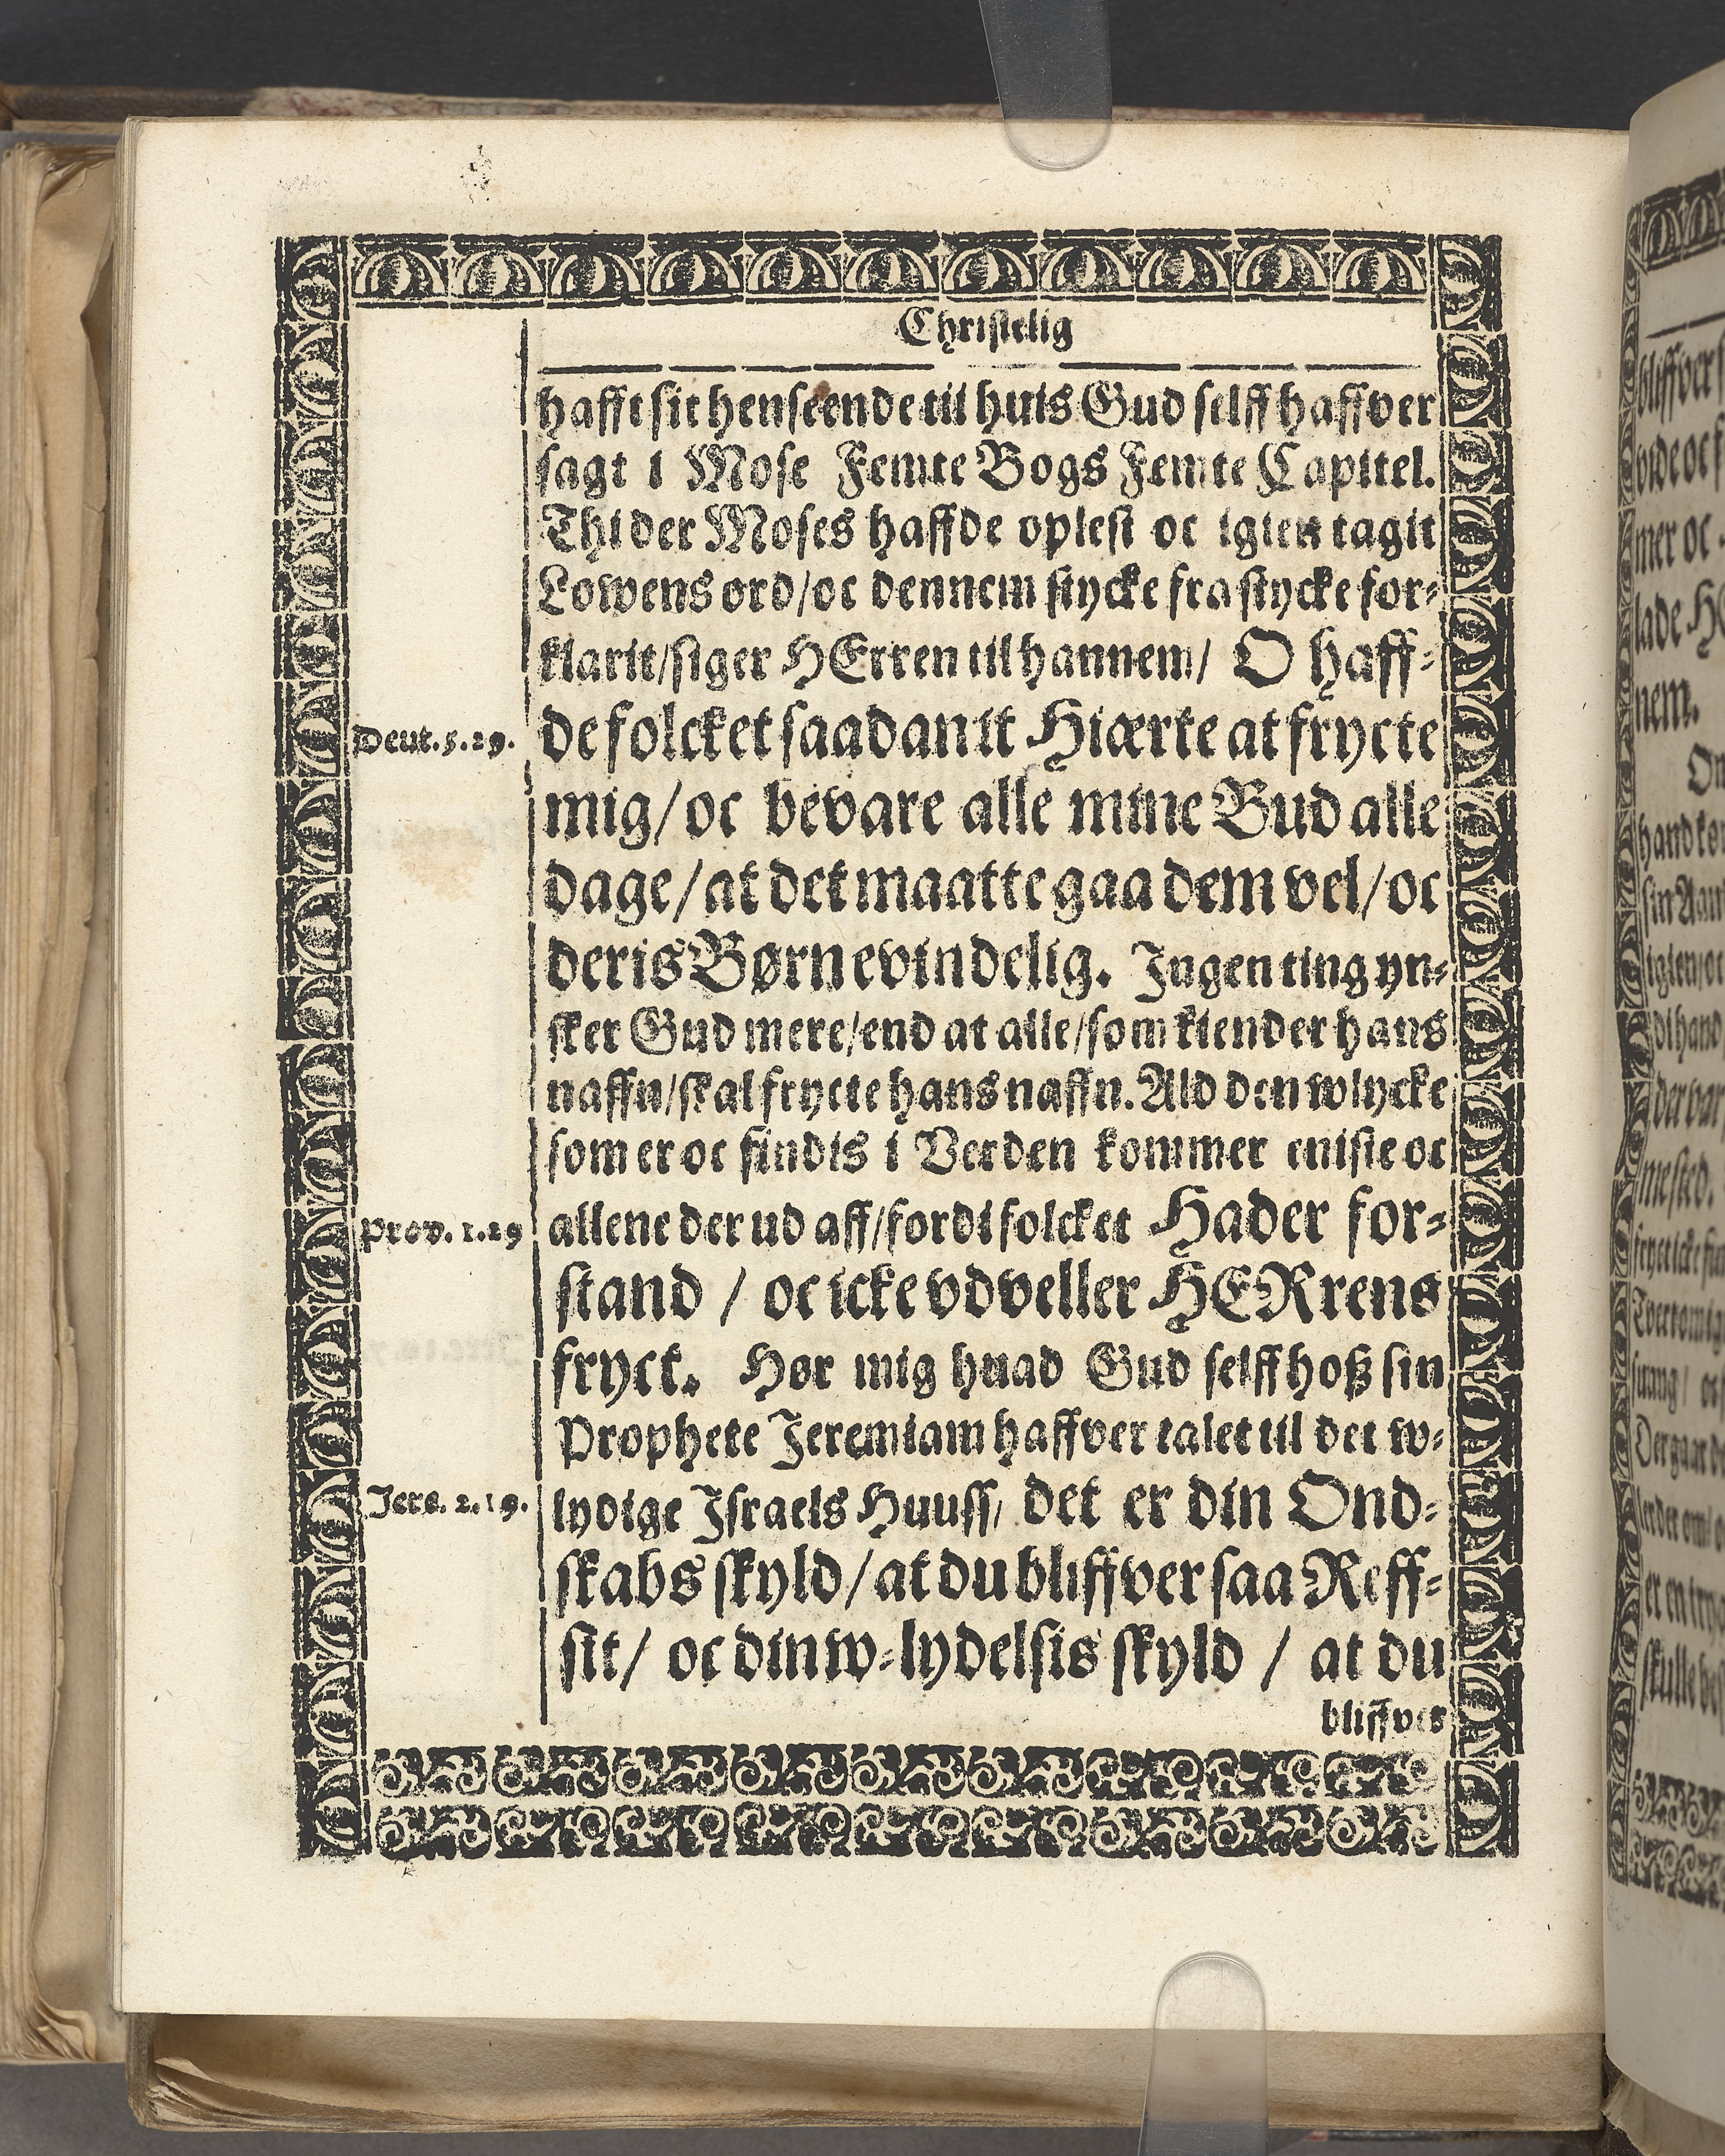 Christelig
hafft sit henseende til huis Gud selff haffver
sagt i Mose Femte Bogs Femte Capittel.
Thi der Moses haffde oplest oc igien tagit
Lowens ord/oc dennem stycke fra stycke for-
klarit/siger HErren til hannem/ O haff-
Deut. 5. 29.
de folcket saadanit Hiærte at frycte
mig/oc bevare alle mine Bud alle
dage/at det maatte gaa dem vel/oc
deris Børn evindelig. Ingen ting yn-
sker Gud mere/end at alle/som kiender hans
naffn/skal frycte hans naffn. Ald den wlycke
som er oc findis i Verden kommer eniste oc
Prov. 1. 29
allene der ud aff/fordi folcket Hader for-
stand / oc icke vdveller HERrens
fryct. Hør mig huad Gud selff hoß sin
Prophete Jeremiam haffver talet til det w-
Jere. 2. 19.
lydige Israels Huuss/ det er din Ond-
skabs skyld/at du bliffver saa Reff-
sit/ oc din w-lydelsis skyld / at du
bliffver
bliffver
mer oc
lade
nem.